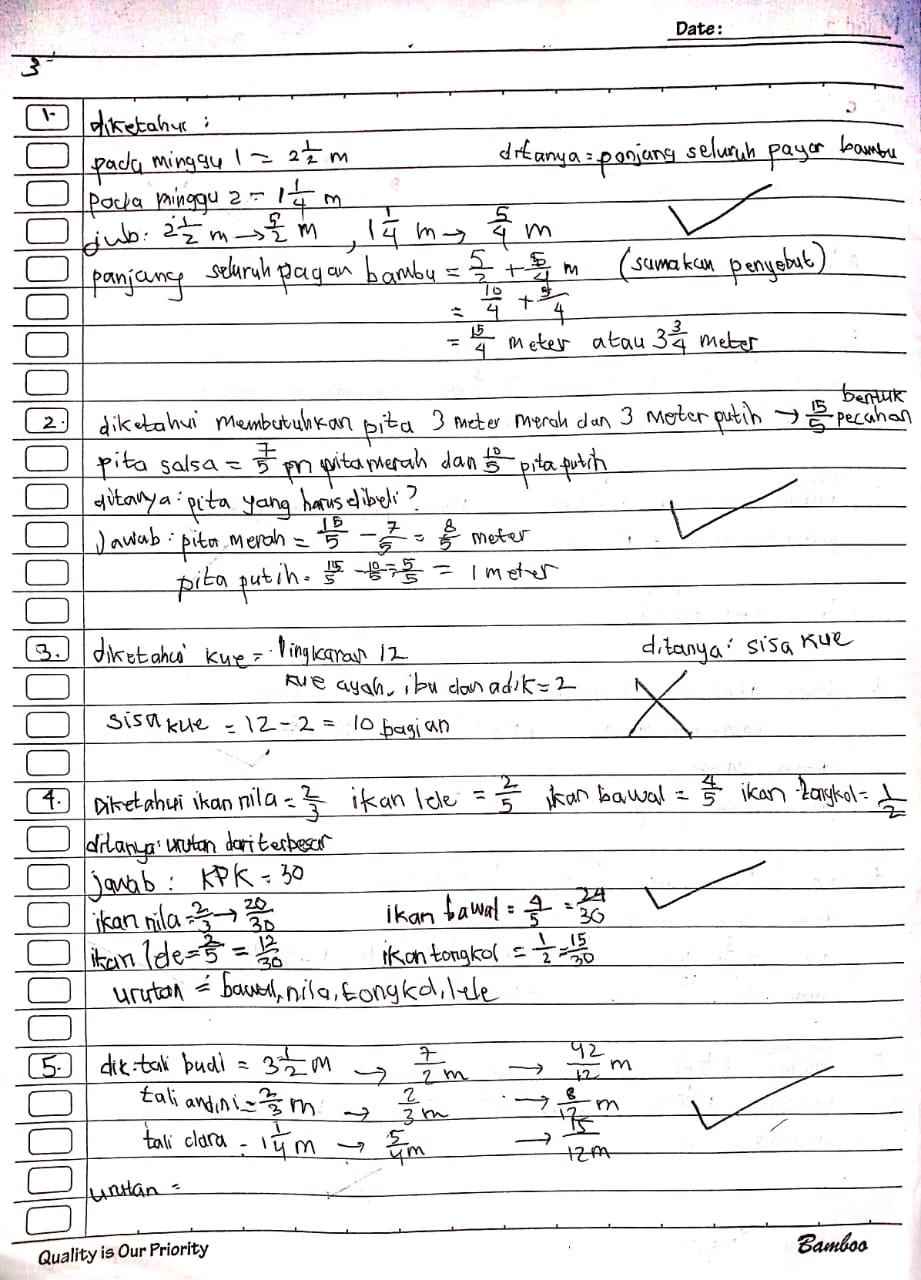 Date:
3
1. diketahui :
pada minggu 1 = 2 1/2 m ditanya = panjang seluruh pagar bambu
Pada minggu 2 = 1 1/4 m
jwb: 2 1/2 m → 5/2 m , 1 1/4 m → 5/4 m
panjang seluruh pagar bambu = 5/2 + 5/4 m (samakan penyebut)
= 10/4 + 5/4
= 15/4 meter atau 3 3/4 meter
2. diketahui membutuhkan pita 3 meter merah dan 3 meter putih → 15/5 bentuk pecahan
pita salsa = 7/5 m pita merah dan 10/5 pita putih
ditanya : pita yang harus dibeli ?
Jawab : pita merah = 15/5 - 7/5 = 8/5 meter
pita putih = 15/5 - 10/5 = 5/5 = 1 meter
3. diketahui kue = lingkaran 12 ditanya : sisa kue
kue ayah, ibu dan adik = 2
sisa kue = 12 - 2 = 10 bagian
4. Diketahui ikan nila = 2/3 ikan lele = 2/5 ikan bawal = 4/5 ikan tongkol = 1/2
ditanya : urutan dari terbesar
jawab : KPK = 30
ikan nila = 2/3 → 20/30 ikan bawal = 4/5 = 24/30
ikan lele = 2/5 = 12/30 ikan tongkol = 1/2 = 15/30
urutan = bawal, nila, tongkol, lele
5. dik : tali budi = 3 1/2 m → 7/2 m → 42/12 m
tali andini = 2/3 m → 2/3 m → 8/12 m
tali clara = 1 1/4 m → 5/4 m → 15/12 m
urutan =
Quality is Our Priority Bamboo